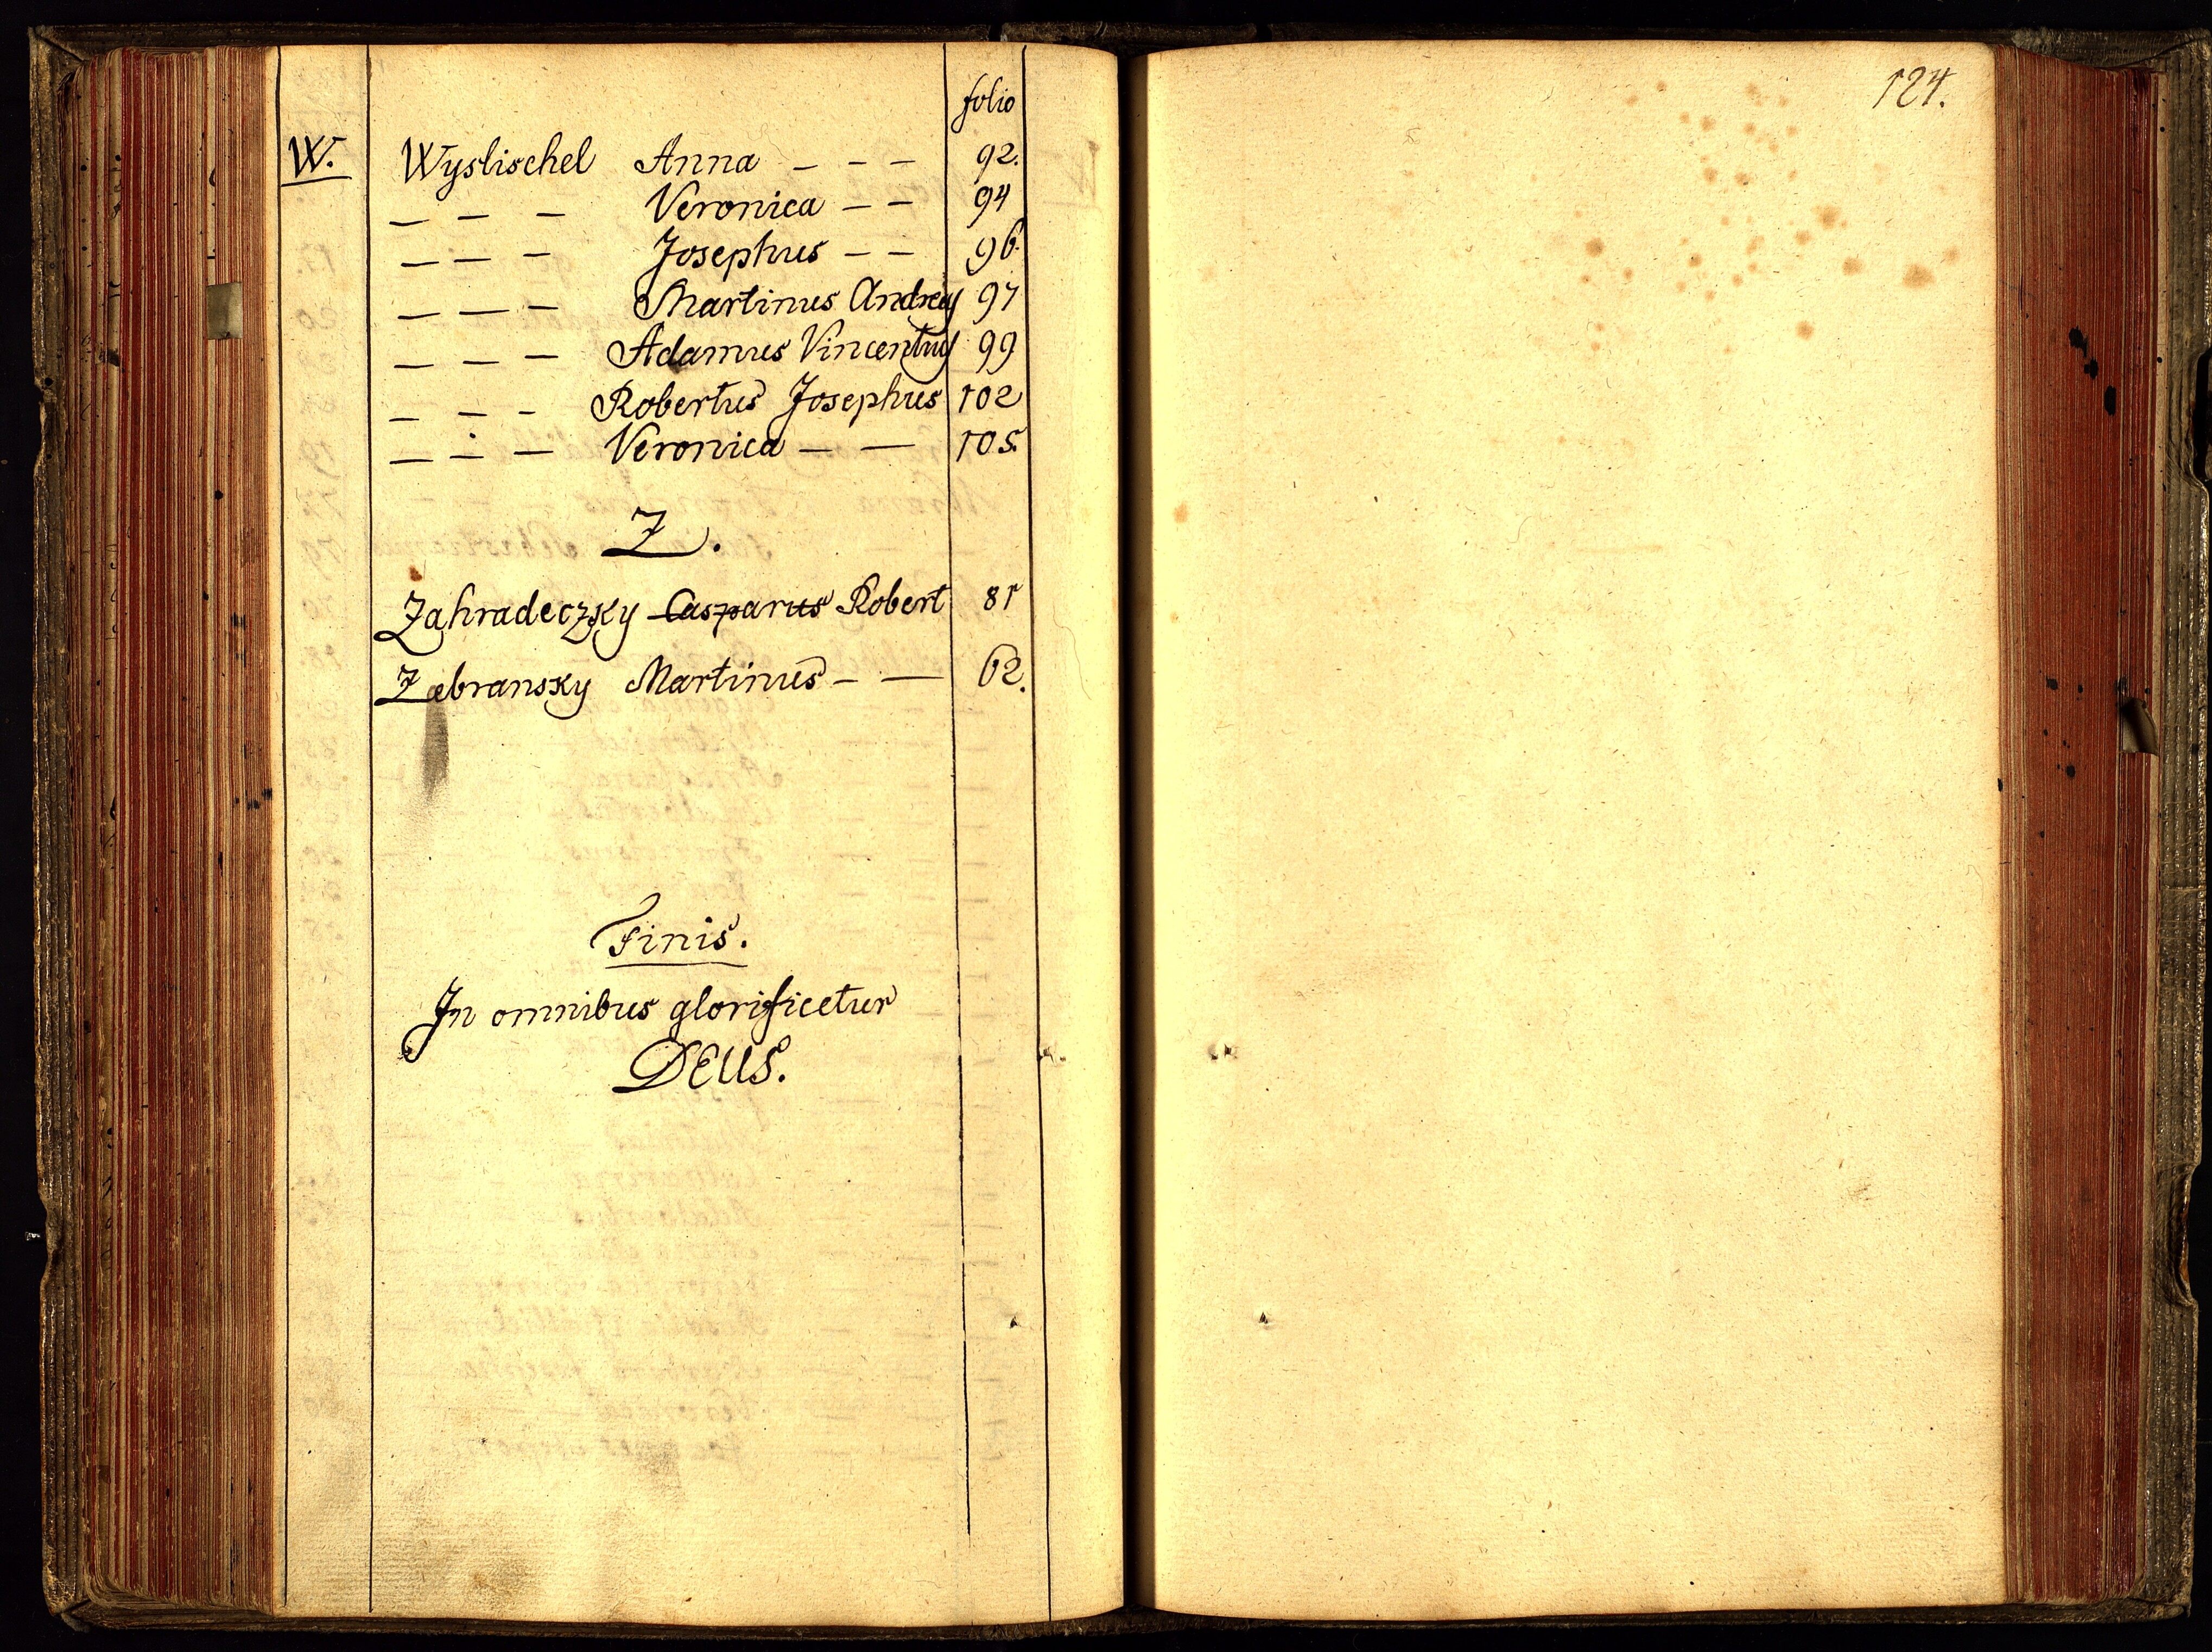 folio
W. Wyslischel Anna - - - 92.
- - - Veronica - - 94
- - - Josephus - - 96.
- - - Martinus Andreas 97
- - - Adamus Vincentius 99
- - - Robertus Josephus 102
- - - Veronica - - 105.
Z.
Zahradeczky Casparus Robert 81
Zebransky Martinus - - 62.
Finis.
In omnibus glorificetur
DEUS.
124.